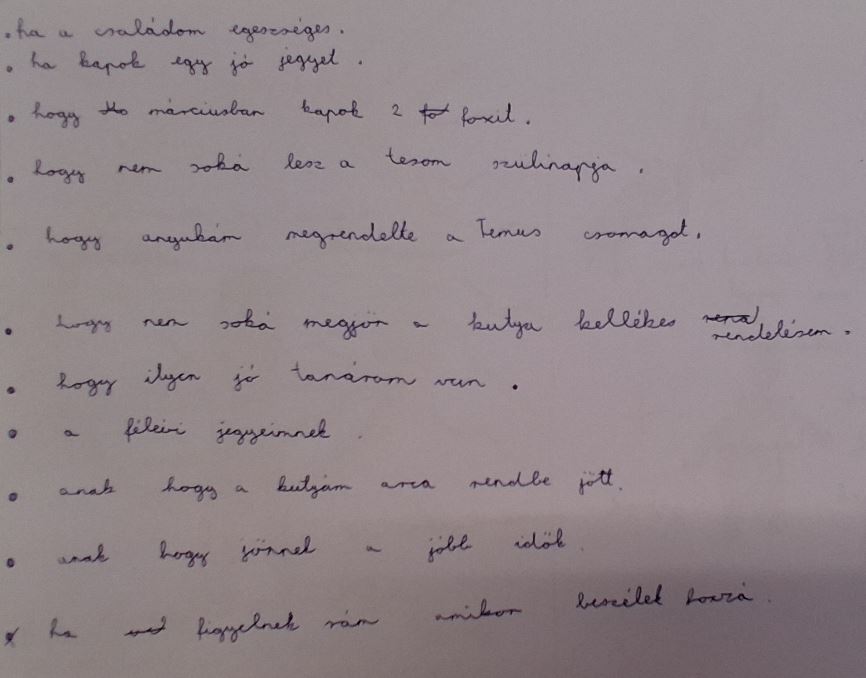 . ha a családom egeszséges.
. ha kapok egy jó jegyet.
. hogy márciusban kapok 2 foxit.
. hogy nem soká lesz a tesom szülinapja.
. hogy anyukám megrendelte a Temus csomagot.
. hogy nem soká megjön a kutya kellékes rendelésem.
. hogy ilyen jó tanárom van.
. a félévi jegyeimnek.
. anak hogy a kutyám arca rendbe jött.
. anak hogy jönnek a jobb idök.
. ha figyelnek rám amikor beszélek hozzá.